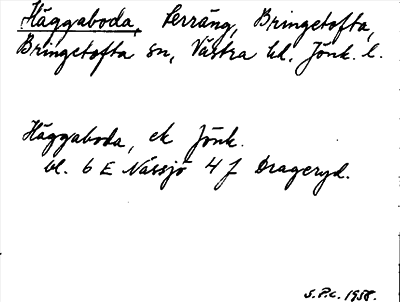 Häggaboda, Terräng, Bringetofta,
Bringetofta sn, Västra hd, Jönk. l.
Häggaboda, ek Jönk.
bl. 6 E Nässjö 4 f Drageryd.
S.P.L. 1958.